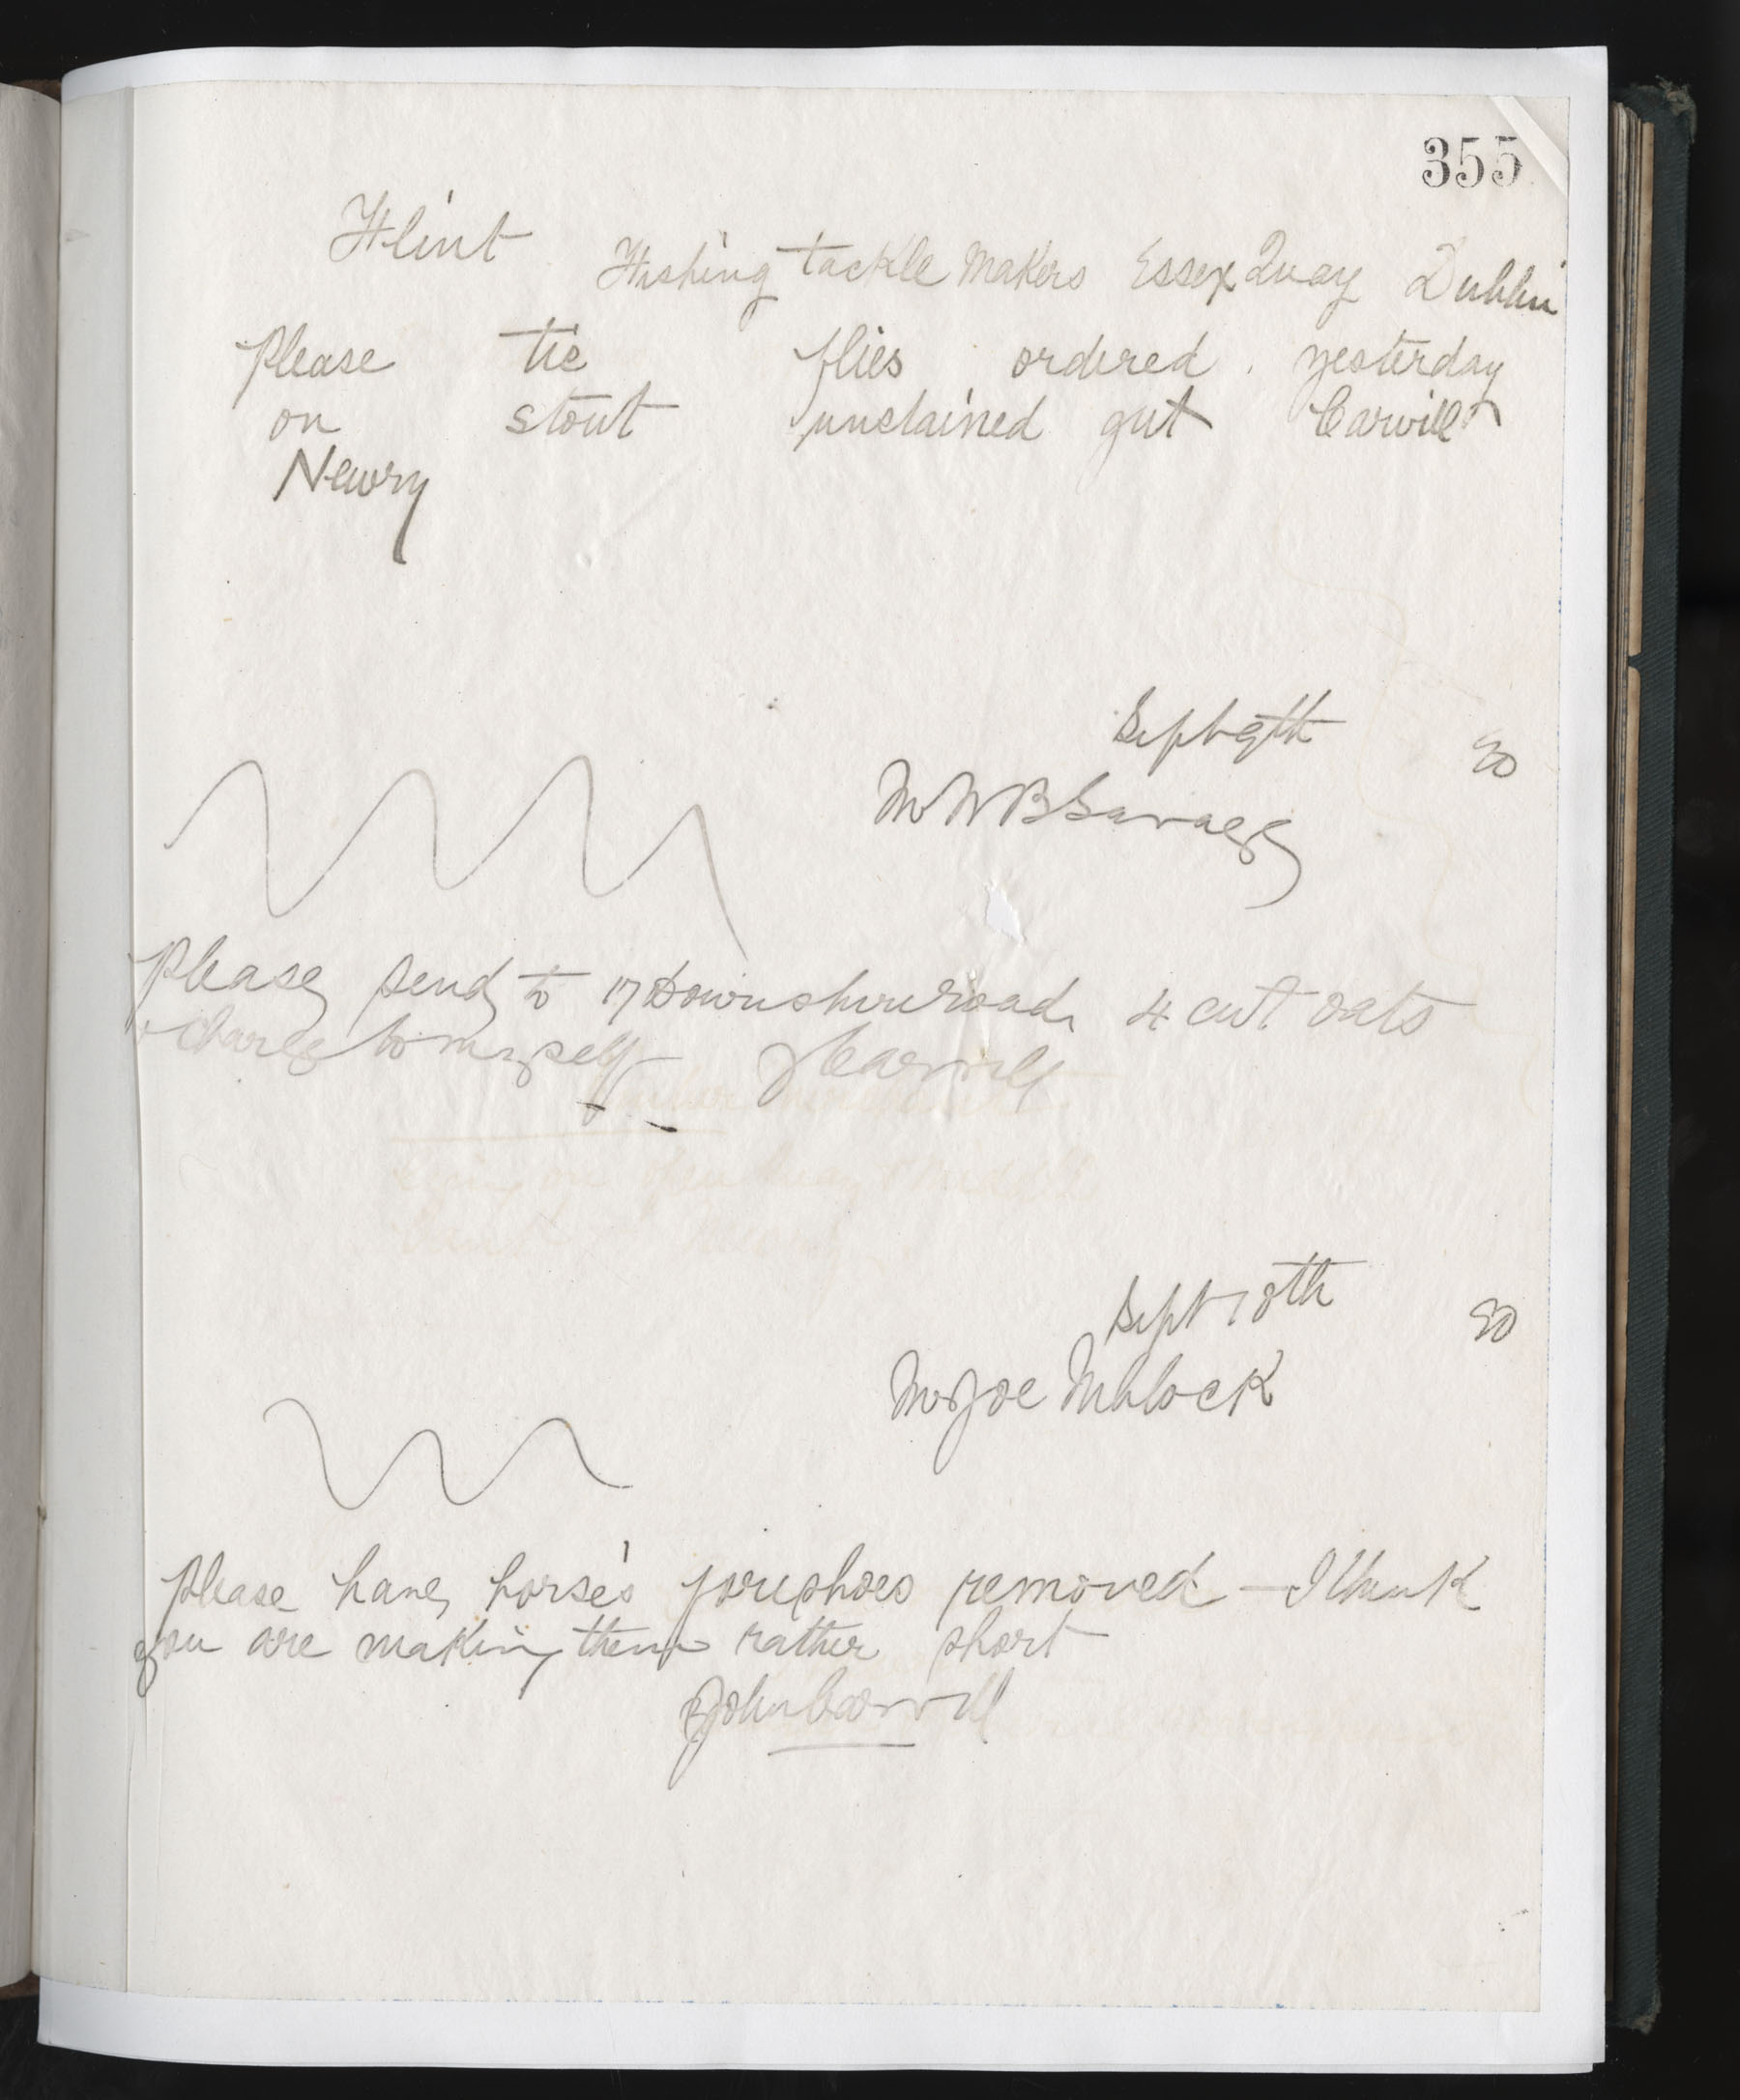 355
Flint Fishing tackle Makers Essex Quay Dublin
Please tie flies ordered yesterday
on stout unstained gut Carvill
Newry
Sept 9th 90
Mr W B Savage
Please send to 17 Downshire road 4 cwt oats
& charge to myself J Carvill
Sept 18th 90
Mr Joe Mulock
Please have horse's foreshoes removed — I think
you are making them rather short
John Carvill